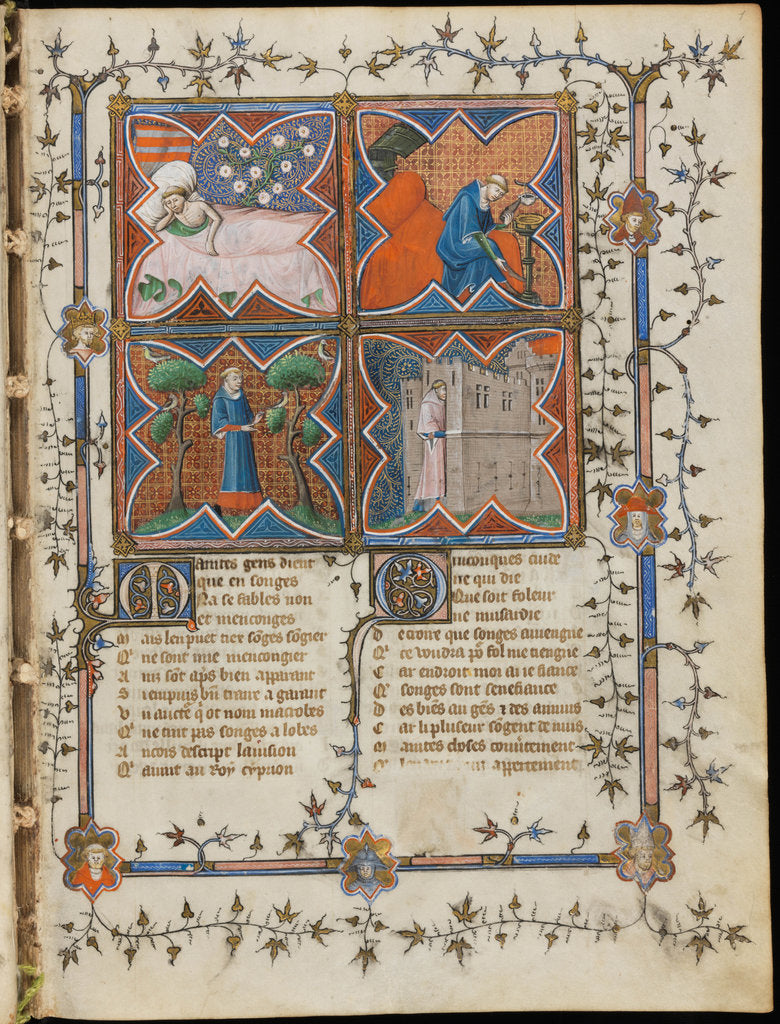 Maintes gens dient
que en songes
Na se fables non
et menconges
Mais len puet tiex sõges sõgier
Qͥ ne sont mie mencongier
Ainz sõt apͤs bien apparant
Si en puis bñ traire a garant
Vn aucteͬ qͥ ot nom macrobes
Qͥ ne tint pas songes a lobes
Ancois descript lauision
Qͥ auint au Roy cyprion
Quiconques cuide
ne qui die
Que soit foleur
ne musardie
de croire que songes auiengne
Qͥ ce voudra põ fol me tiengne
Car endroit moi ai ie fiance
Qͤ songes sont senefiance
des biẽs au gẽs ⁊ des annuis
Car li pluseur sõgent de nuis
Maintes choses couũtement
appertement